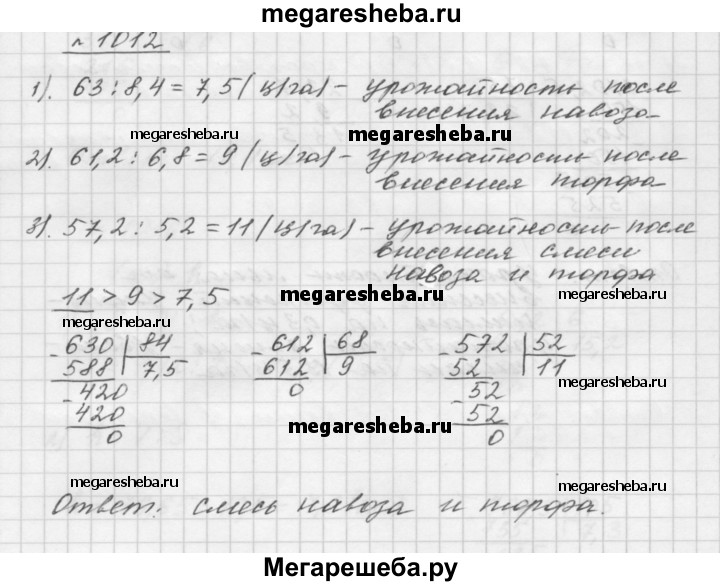 megaresheba.ru
№ 1012
1). 63 : 8,4 = 7,5 (ц/га) - урожайность после
внесения навоза
megaresheba.ru megaresheba.ru
2). 61,2 : 6,8 = 9 (ц/га) - урожайность после
внесения торфа
3). 57,2 : 5,2 = 11 (ц/га) - урожайность после
внесения смеси
навоза и торфа
11 > 9 > 7,5 megaresheba.ru
megaresheba.ru
- 630 | 84 - 612 | 68 - 572 | 52
588 | 7,5 612 | 9 52 | 11
- 420 0 - 52
420 52
0 0
megaresheba.ru
megaresheba.ru
megaresheba.ru
Ответ: смесь навоза и торфа.
megaresheba.ru
Мегарешеба.ру